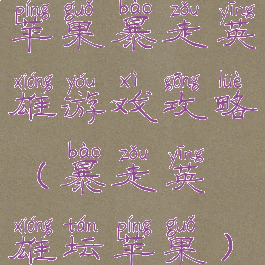 píng guǒ bào zǒu yīng
苹果暴走英
xióng yóu xì gōng lüè
雄游戏攻略
bào zǒu yīng
(暴走英
xióng tán píng guǒ
雄坛苹果)